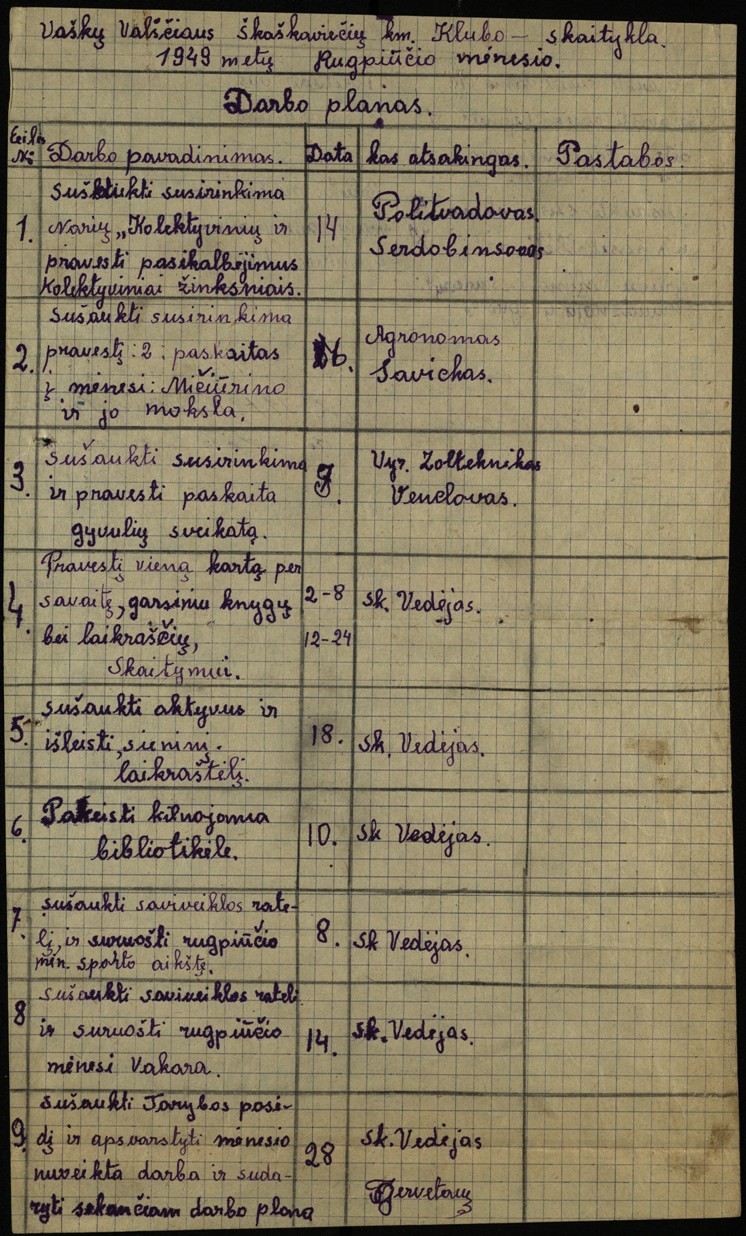 Vaškų Valsčiaus Škaškaviečių km. Klubo – skaitykla.
1949 metų Rugpiūčio mėnesio.
Darbo planas.
Eilės № Darbo pavadinimas. Data kas atsakingas. Pastabos.
1. sušaukti susirinkima
Narių „Kolektyvinių ir
pravesti pasikalbėjimus
Kolektyviniai žinksniais.
14
Politvadovas.
Serdobinsovas
2. sušaukti susirinkima
pravestį : 2 : paskaitas
į mėnesi : Mičiūrino
ir jo moksla.
Agronomas
Savickas.
3. sušaukti susirinkima
ir pravesti paskaita
gyvulių sveikatą.
9.
Vyr. Zolteknikas
Venclovas.
4. Pravestį vieną kartą per
savaitę, garsiniu knygų
bei laikraščių,
Skaitymui.
2-8
12-24
sk. Vedėjas.
5. sušaukti aktyvus ir
išleisti, sieninį.
laikraštėlį.
18.
sk. Vedėjas.
6. Pakeisti kilnojama
bibliotikėle.
10.
sk Vedėjas.
7. sušaukti saviveiklos rate-
lį, ir suruošti rugpiūčio
mėn. sporto aikštę.
8.
sk Vedėjas.
8 sušaukti saviveiklos rateli
ir suruošti rugpiūčio
mėnesi Vakara.
14.
sk. Vedėjas.
9. sušaukti Tarybos posė-
dį ir apsvarstyti mėnesio
nuveikta darba ir suda-
ryti sekančiam darbo plana
28
sk. Vedėjas